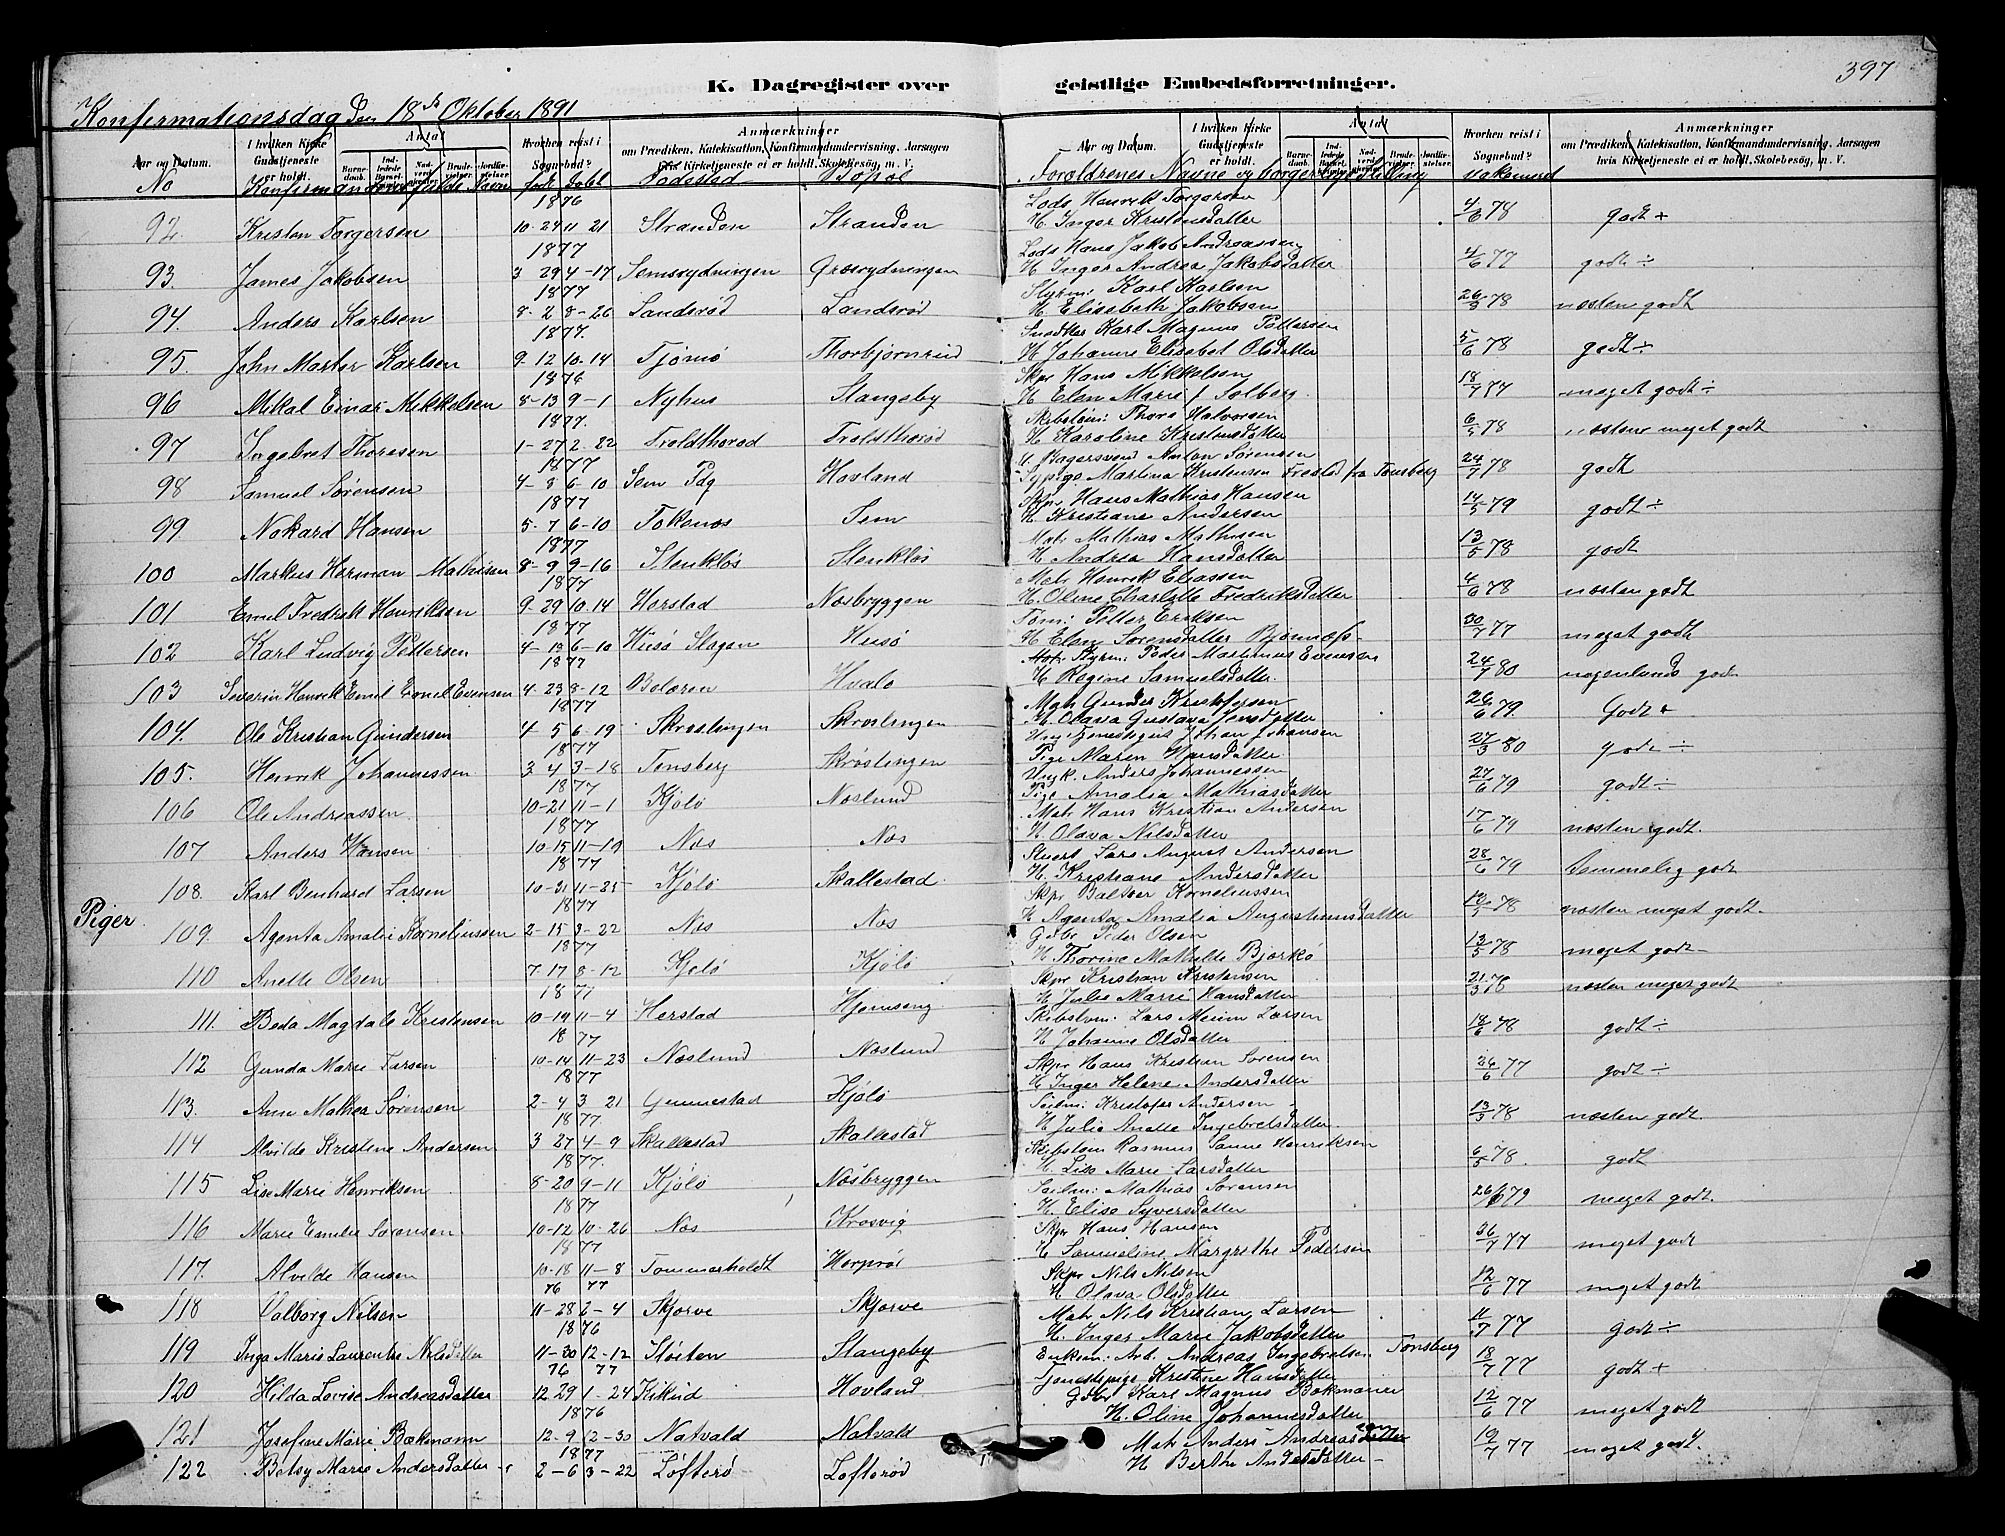 397
K. Dagregister over geistlige Embedsforretninger.
Konfermationsdag den 18de Oktober 1891
Aar og Datum. I hvilken Kirke Gudstjeneste er holdt. Antal Hvorhen reist i Sognebud? Anmærkninger om Prædiken, Katekisation, Konfirmandundervisning, Aarsagen hvis Kirketjeneste ei er holdt, Skolebesøg, m. V.
Aar og Datum. I hvilken Kirke Gudstjeneste er holdt. Antal Hvorhen reist i Sognebud? Anmærkninger om Prædiken, Katekisation, Konfirmandundervisning, Aarsagen hvis Kirketjeneste ei er holdt, Skolebesøg, m. V.
No Konfermandernes fulde Navne født Døbt Fødested Bopæl Foreldrenes Navne og borgerlige Stilling vakcineret
1876 Lods Henrik Torgersen
92. Kristen Torgersen 10-24 11 21 Stranden Stranden H. Inger Kristensdatter 4/6 78 godt +
1877 Lods Hans Jakob Andreassen
93. James Jakobsen 3 29 4-17 Semsrydningen Græsrydningen H Inger Andrea Jakobsdatter 4/6 77 godt ÷
1877 Styrm: Karl Karlsen
94. Anders Karlsen 8-2 8-26 Sandsrød Sandsrød H Elisabeth Jakobsen 26/8 78 næsten godt
1877. Karl Magnus Pettersen
95. John Marter Karlsen 9-12 10-14 Tjømø Thorbjørnrød H Johanne Elisabet Olsdatter 5/6 78 godt ÷
1876 Skpr Hans Mikkelsen
96 Mikal Einar Mikkelsen 8-13 9-1 Nyhus Slangeby H Elen Marie f Solberg 18/7 77 meget godt ÷
1877. Skibstøm: Thore Halvorsen
97 Ingebret Thoresen 1-27 2-22 Troldthorød Troldthorød H Karoline Kristensdatter 6/5 78 næsten meget godt
1877 U Bagersvend Anton Sørensen
98 Samuel Sørensen 4-8 6-10 Sem Pdg Hovland Typige Martina Kristensen Frestad fra Tønsberg 24/7 78 godt
1877 Skpr Hans Mathias Hansen
99 Nokard Hansen 5-7 6-10 Tokenæs Sem H Kristiane Andersen 14/5 79 godt ÷
1877 Matr Mathias Mathisen
100 Markus Herman Mathisen 8-9 9-16 Stenkløs Stenkløs H Andrea Hansdatter 13/5 78 godt
1877 Matr Henrik Eliassen
101 Emil Fredrik Henriksen 9-29 10-14 Herstad Næsbryggen H. Oline Charlotte Fredriksdatter 4/6 78 næsten godt
1877 Tøm: Petter Eriksen
102 Karl Ludvig Pettersen 4-13 6-10 Husø Slagen Husø H Elen Sørensdatter 30/7 77 meget godt
1877 Styrm: Peder Martinus Evensen
103 Severin Henrik Emil Evensen 4-23 8-12 Bolæren Hvalø H Regine Samuelsdatter. 24/7 80 nogenlunde godt
1877 Matr Gunder Kristofersen
104. Ole Kristian Gundersen 4-5 6-19 Skrøslingen Skrøslingen H. Olava Gustava Jensdatter 26/6 79. Godt +
1877 Johan Johansen
105. Henrik Johannessen 3-4 3-18 Tønsberg Skrøslingen Pige Maren Hansdatter 27/3 80 godt ÷
1877 Ungk. Anders Johannessen
106 Ole Andreassen 10-21 11-1 Kjølø Næslund Pige Amalia Mathiasdatter 27/6 79 godt ÷
1877 Matr Hans Kristian Andersen
107 Anders Hansen 10-15 11-19 Næs Næs H. Olava Nilsdatter 17/6 79 næsten godt.
1877 Stuert Lars August Andersen
108. Karl Benhard Larsen 10-21 11-25 Kjølø Skallestad H. Kristiane Andersdatter 28/6 79 temmelig godt
Piger
1877 Skpr Baltser Korneliussen
109 Agenta Amalie Korneliussen 2-15 3-22 Næs Næs H Agenta Amalia Augustinusdatter 12/5 78 næsten meget godt.
1877 Gdbr Peder Olsen
110 Anette Olsen 7-17 8-12 Kjølø Kjølø H Thorine Mathilde Bjørkø 13/5 78 meget godt
1877 Skpr Kristian Kristensen
111. Beda Magdale Kristensen 10-19 11-4 Herstad Hjemseng H Julie Marie Hansdatter 21/3 78 næsten meget godt
1877 Skibstøm: Lars Larsen
112 Gunda Marie Larsen 10-14 11-23 Næslund Næslund H Johanne Olsdatter 18/6 78 godt ÷
1877 Skpr Hans Kristian Sørensen
113. Ann Mathea Sørensen 2-4 3 21 Gunnestad Kjølø H Inger Helene Andersdatter 26/6 77 godt ÷
1877. Seilm: Kristofer Andersen
114 Alvilde Kristine Andersen 3 27 4-9 Skallestad Skallestad H Julie Anette Ingebretsdatter 13/3 78 næsten godt
1877. Skibstøm Rasmus Henriksen
115 Lise Marie Henriksen 8-20 9-11 Kjølø Næsbryggen H. Lise Marie Larsdatter 6/5 78. godt
1877 Seilm: Mathias Sørensen
116 Marie Emilie Sørensen 10-12 10-26 Næs Krosvig H. Elise Syversdatter 26/6 79 meget godt.
1877 Skpr Hans Hansen
117. Alvilde Hansen 10-18 11-8 Tommerholdt Herprøi H Samueline Margrethe Pedersen 26/7 77 meget godt
76 77 Skpr Nils Nilsen
118 Valborg Nilsen 11-28 2-4 Skjerve Skjerve H Olava Olsdatter 12/6 77 meget godt
1876 Matr Nils Kristian Larsen
119 Inga Marie Laurentse Nilsdatter 11-30 12-12 Støiten Slangeby H. Inger Marie Jakobsdatter 11/7 77 godt ÷
76 77 Enkem: Arb. Andreas Ingebretsen Tønsberg
120 Hilda Lovise Andreasdatter 12 29 1-24 Kikud Hovland Tjenestepige Kristine Hansdatter 18/7 77 godt +
1876 Gdbr Karl Magnus Bøkmann
121 Josefine Marie Bækmann 12-9 12-30 Natvald Natvald H. Oline Johannesdatter 12/6 77 meget godt
1877 Matr Anders Andreassen
122 Betsy Marie Andersdatter 2-6 3-22 Løfterø Løfterød H Berthe Andersdatter 19/7 77 meget godt.